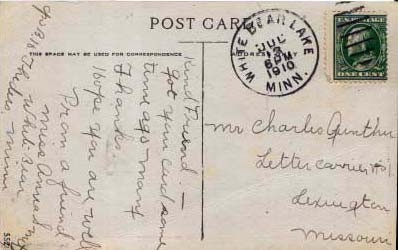 POST CARD
THIS SPACE MAY BE USED FOR CORRESPONDENCE
ADDRESS
WHITE BEAR LAKE
JUL
6 PM
1910
MINN.
U.S. POSTAGE
ONE CENT
Kind Friend. —
Got your card some
time ago - many
thanks.
Hope you are well
From a friend
Miss
White Bear
Minn
Mr Charles Gunther
Letter carrier No 1
Lexington
Missouri